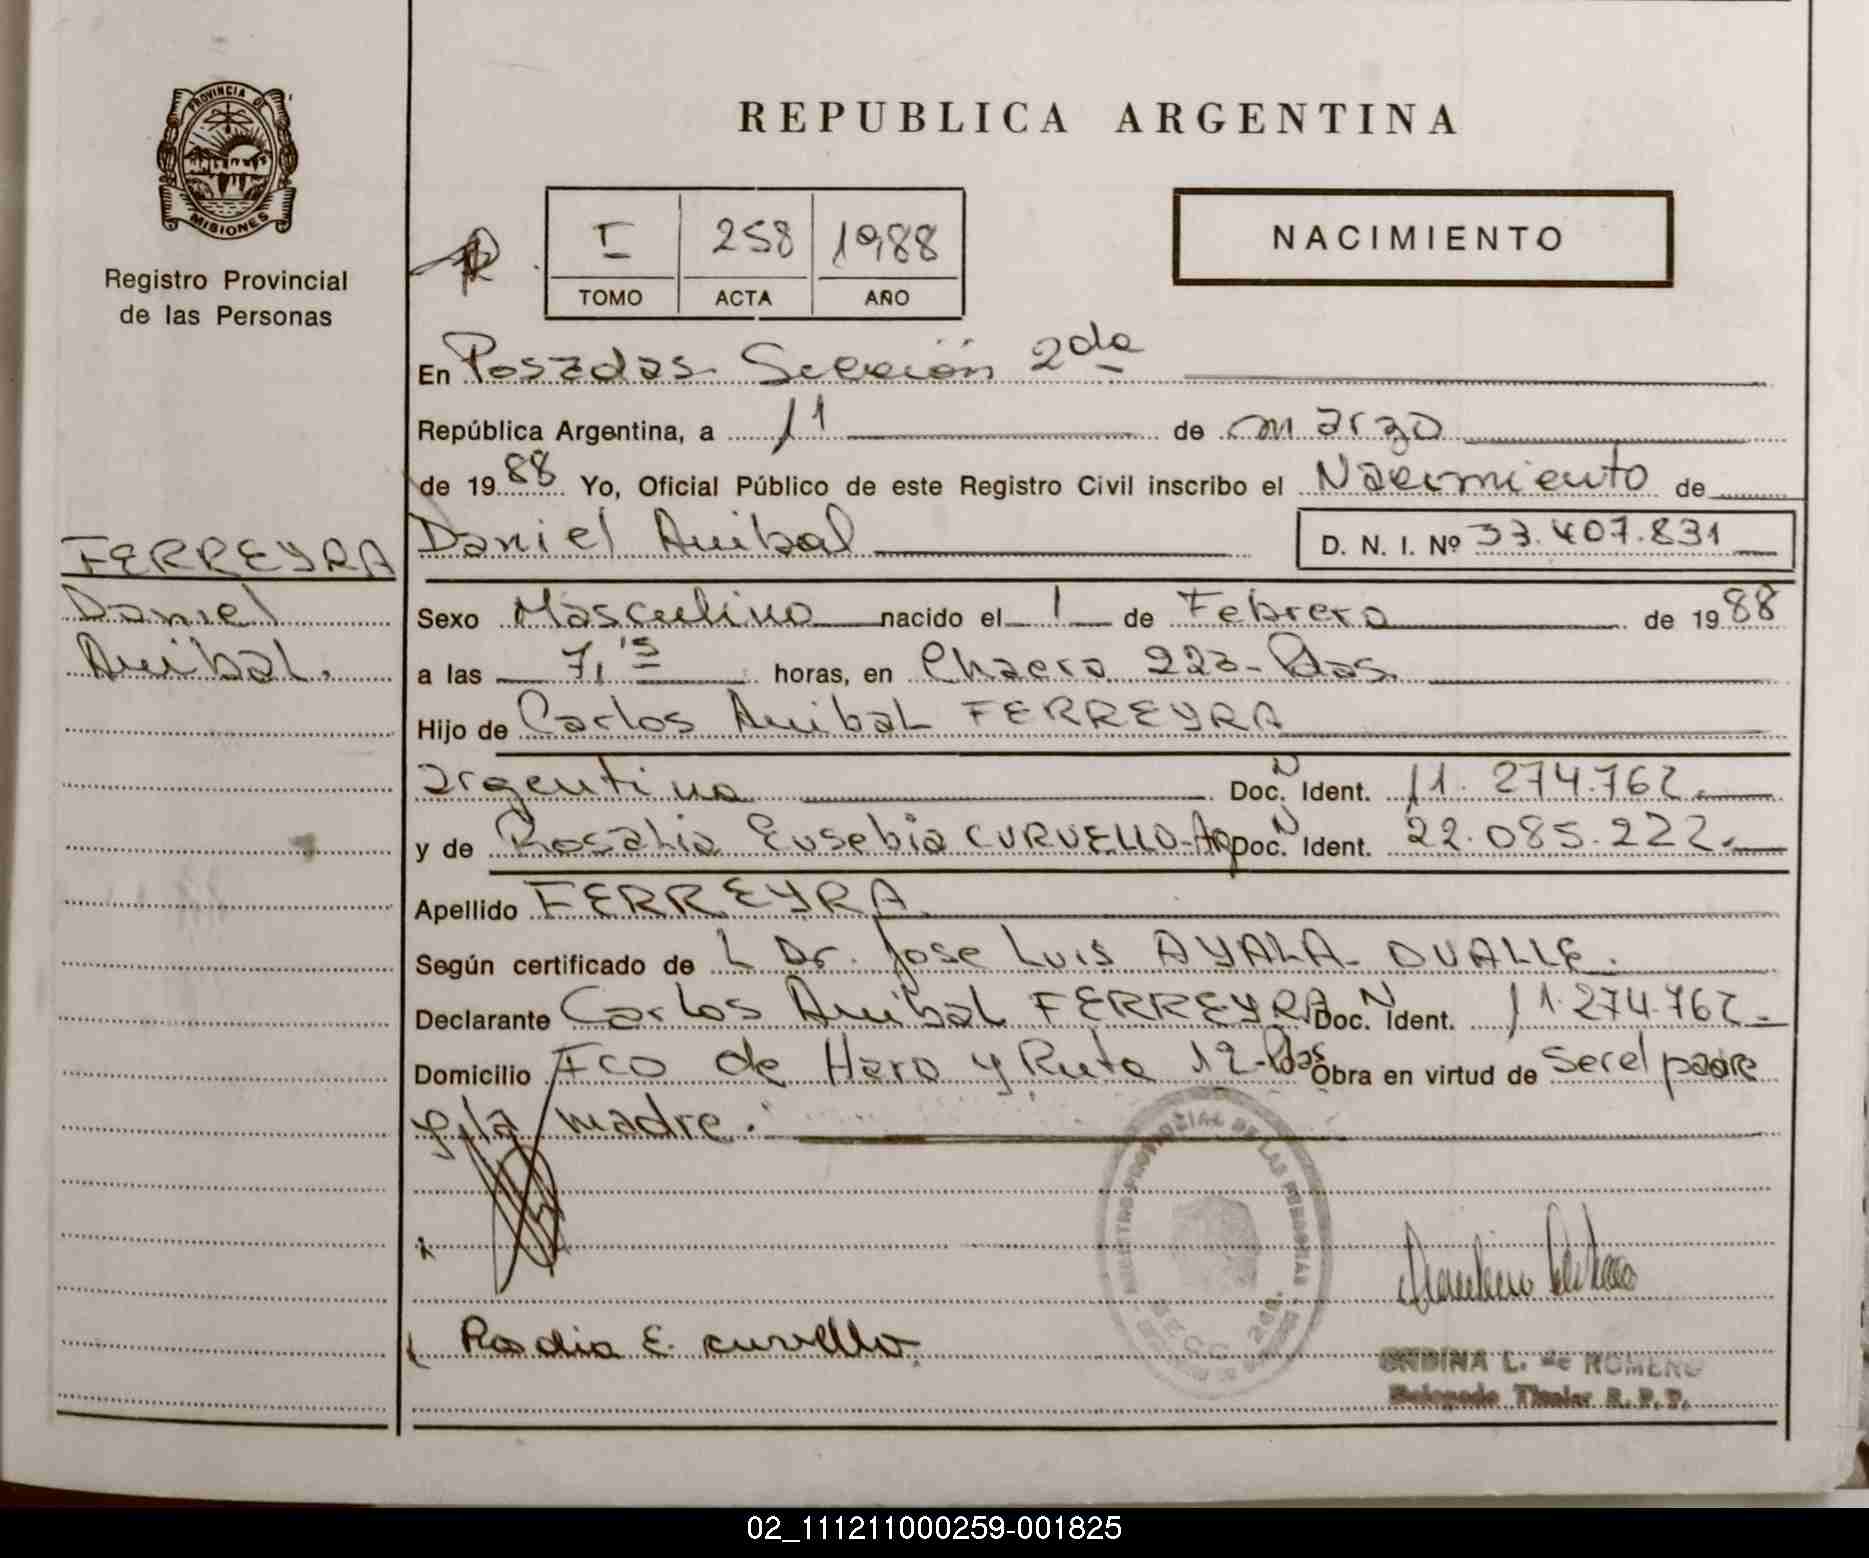 PROVINCIA DE
MISIONES
Registro Provincial
de las Personas
REPUBLICA ARGENTINA
I 258 1988
TOMO ACTA AÑO
NACIMIENTO
En Posadas Sección 2da
República Argentina, a 11 de marzo
de 1988 Yo, Oficial Público de este Registro Civil inscribo el Nacimiento de
Daniel Anibal D. N. I. Nº 33.407.831
FERREYRA
Daniel
Anibal.
Sexo Masculino nacido el 1 de Febrero de 1988
a las 7,15 horas, en Chacra 223-Pdas.
Hijo de Carlos Anibal FERREYRA
argentino Doc. N Ident. 11.274.762.
y de Rosalia Eusebia CURVELLO-Arg Doc. N Ident. 22.085.222.
Apellido FERREYRA
Según certificado de L Dr. Jose Luis AYALA- OVALLE.
Declarante Carlos Anibal FERREYRA Doc. N Ident. 11.274.762.
Domicilio Fco de Haro y Ruta 12-Pdas Obra en virtud de ser el padre
y la madre.
REGISTRO PROVINCIAL DE LAS PERSONAS
SECC. 2da.
Rosalia E. curvello
L. de ROMERO
Titular R. P. P.
02_111211000259-001825